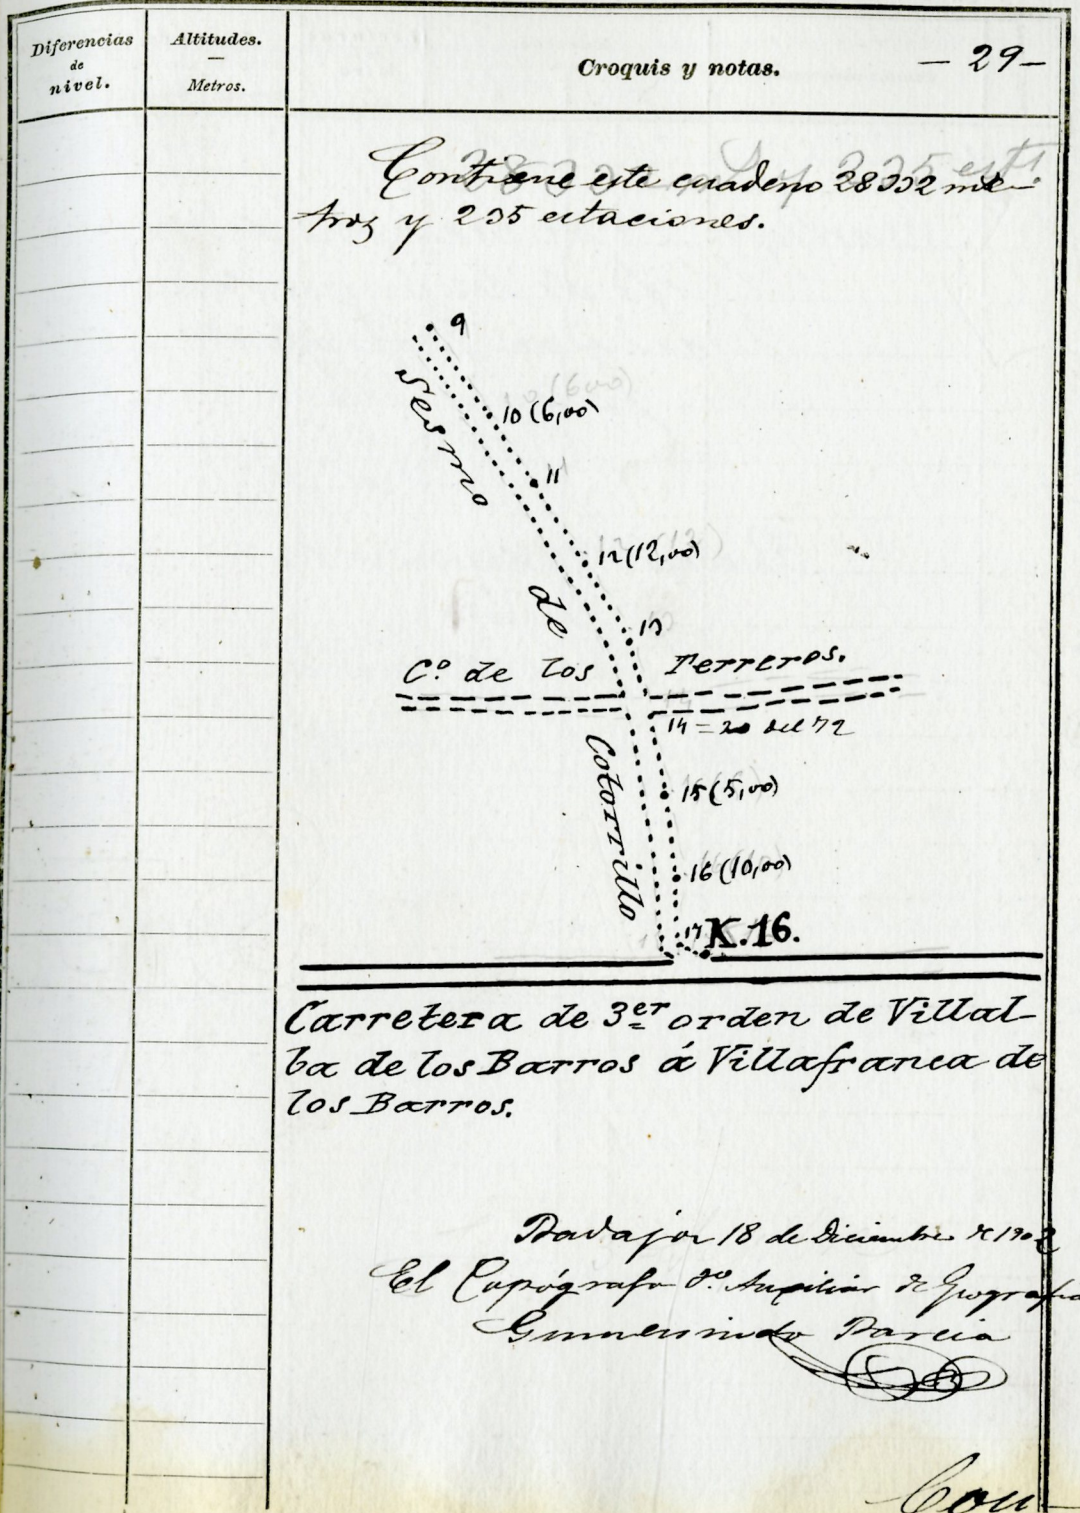 Diferencias
de
nivel.
Altitudes.
Metros.
Croquis y notas.
- 29 -
Contiene este cuaderno 28332 me-
tros y 235 estaciones.
9
10 (6,00)
11
12 (12,00)
13
Sesmo de Cotorrillo
C.º de los Ferreros.
14 = 20 del 72
15 (5,00)
16 (10,00)
17 K.16.
Carretera de 3er orden de Villal-
ba de los Barros á Villafranca de
los Barros.
Badajoz 18 de Diciembre de 1902
El Topógrafo Auxiliar de Geografía
Gumersindo García
Con-